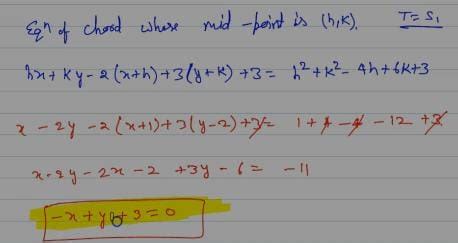 Eqn of chord whose mid-point is (h,k). T=S₁
hx+ky-2(x+h)+3(y+k)+3= h²+k²-4h+6k+3
x-2y-2(x+1)+3(y-2)+3= 1+4-4-12+3
x-2y-2x-2+3y-6= -11
-x+y+3=0